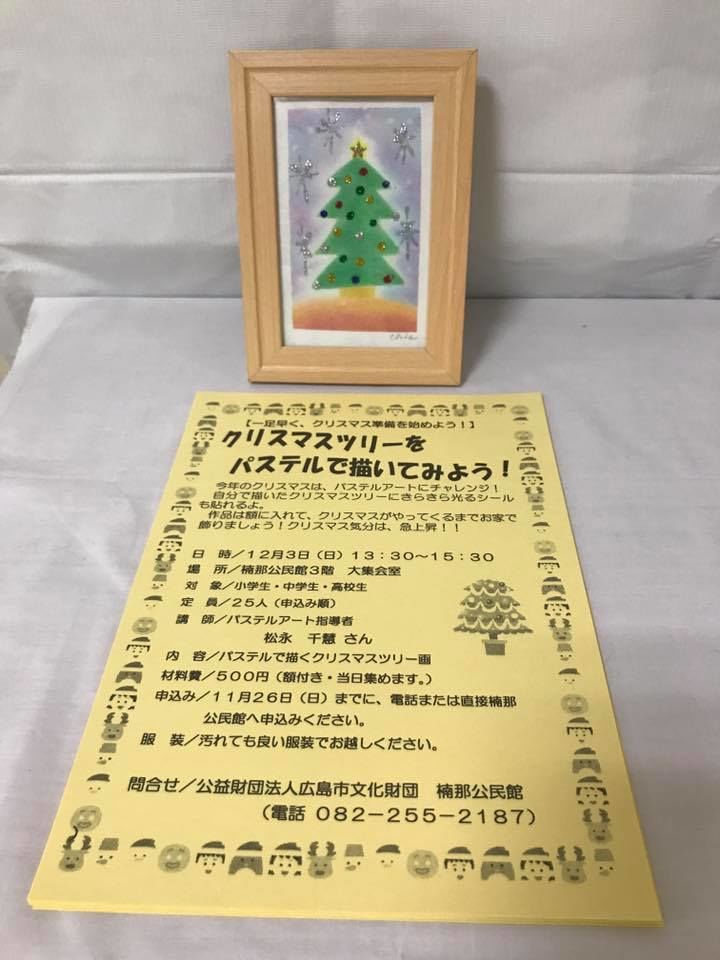 【一足早く、クリスマス準備を始めよう！】
クリスマスツリーを
パステルで描いてみよう！
今年のクリスマスは、パステルアートにチャレンジ！
自分で描いたクリスマスツリーにきらきら光るシール
も貼れるよ。
作品は額に入れて、クリスマスがやってくるまでお家で
飾りましょう！クリスマス気分は、急上昇！！
日　時／１２月３日（日）１３：３０～１５：３０
場　所／楠那公民館３階　大集会室
対　象／小学生・中学生・高校生
定　員／２５人（申込み順）
講　師／パステルアート指導者
松永　千慧 さん
内　容／パステルで描くクリスマスツリー画
材料費／５００円（額付き・当日集めます。）
申込み／１１月２６日（日）までに、電話または直接楠那
公民館へ申込みください。
服　装／汚れても良い服装でお越しください。
問合せ／公益財団法人広島市文化財団　楠那公民館
（電話 ０８２－２５５－２１８７）